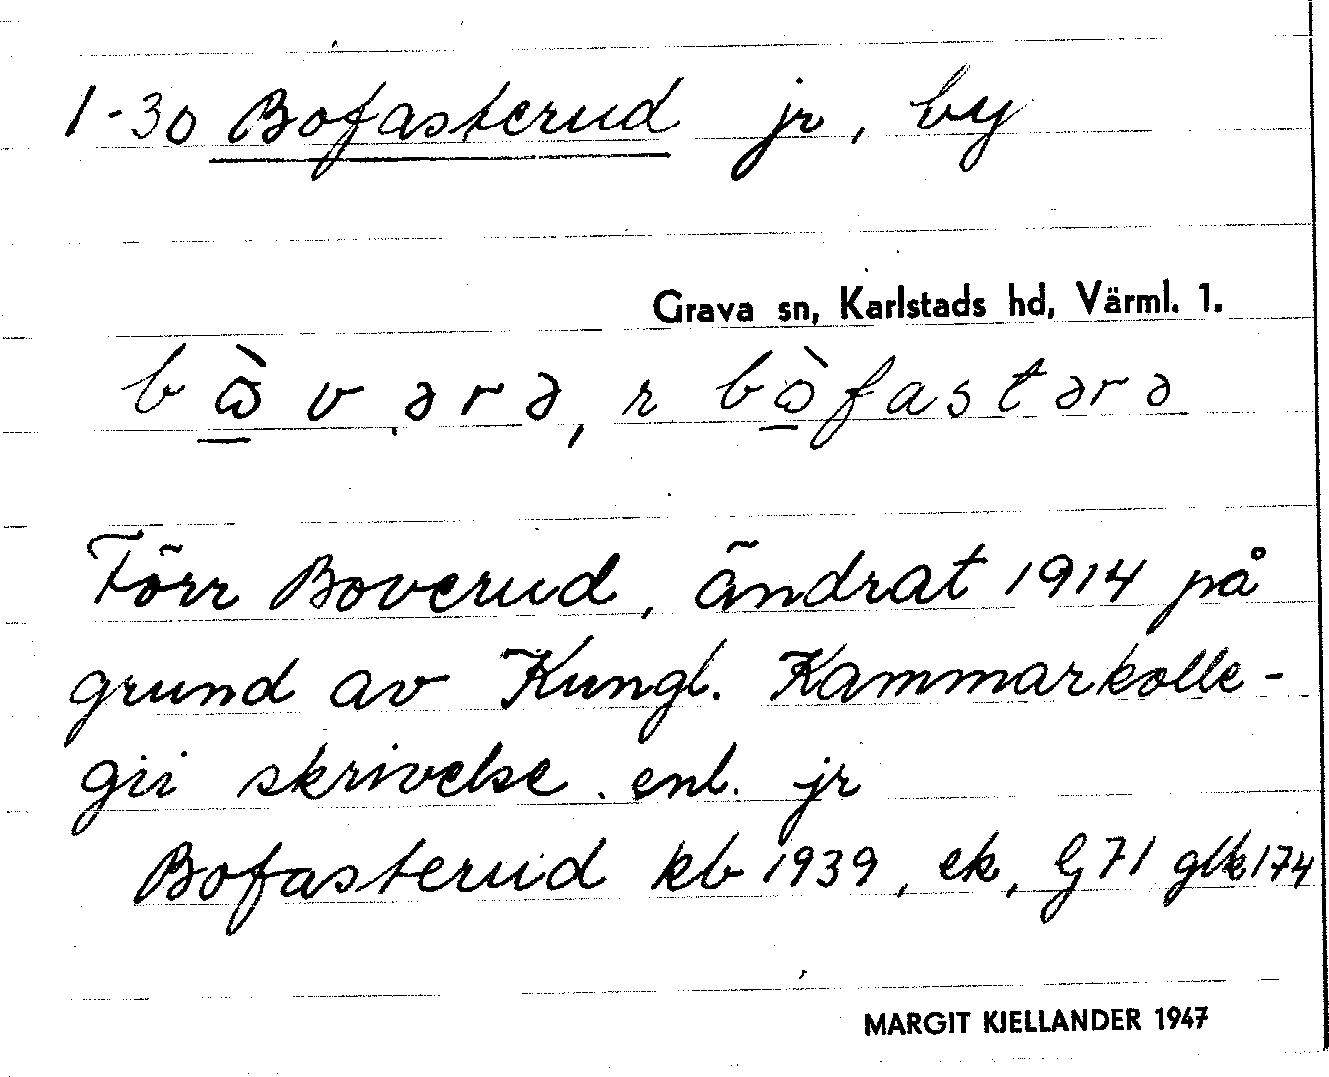 1-30 Bofasterud jr, by
Grava sn, Karlstads hd, Värml. 1.
bὼ̲v.ərə, r bὼ̲fastərə
Förr Boverud, ändrat 1914 på
grund av Kungl. Kammarkolle-
gii skrivelse. enl. jr
Bofasterud kb 1939, ek, G 71 glk 174
MARGIT KJELLANDER 1947